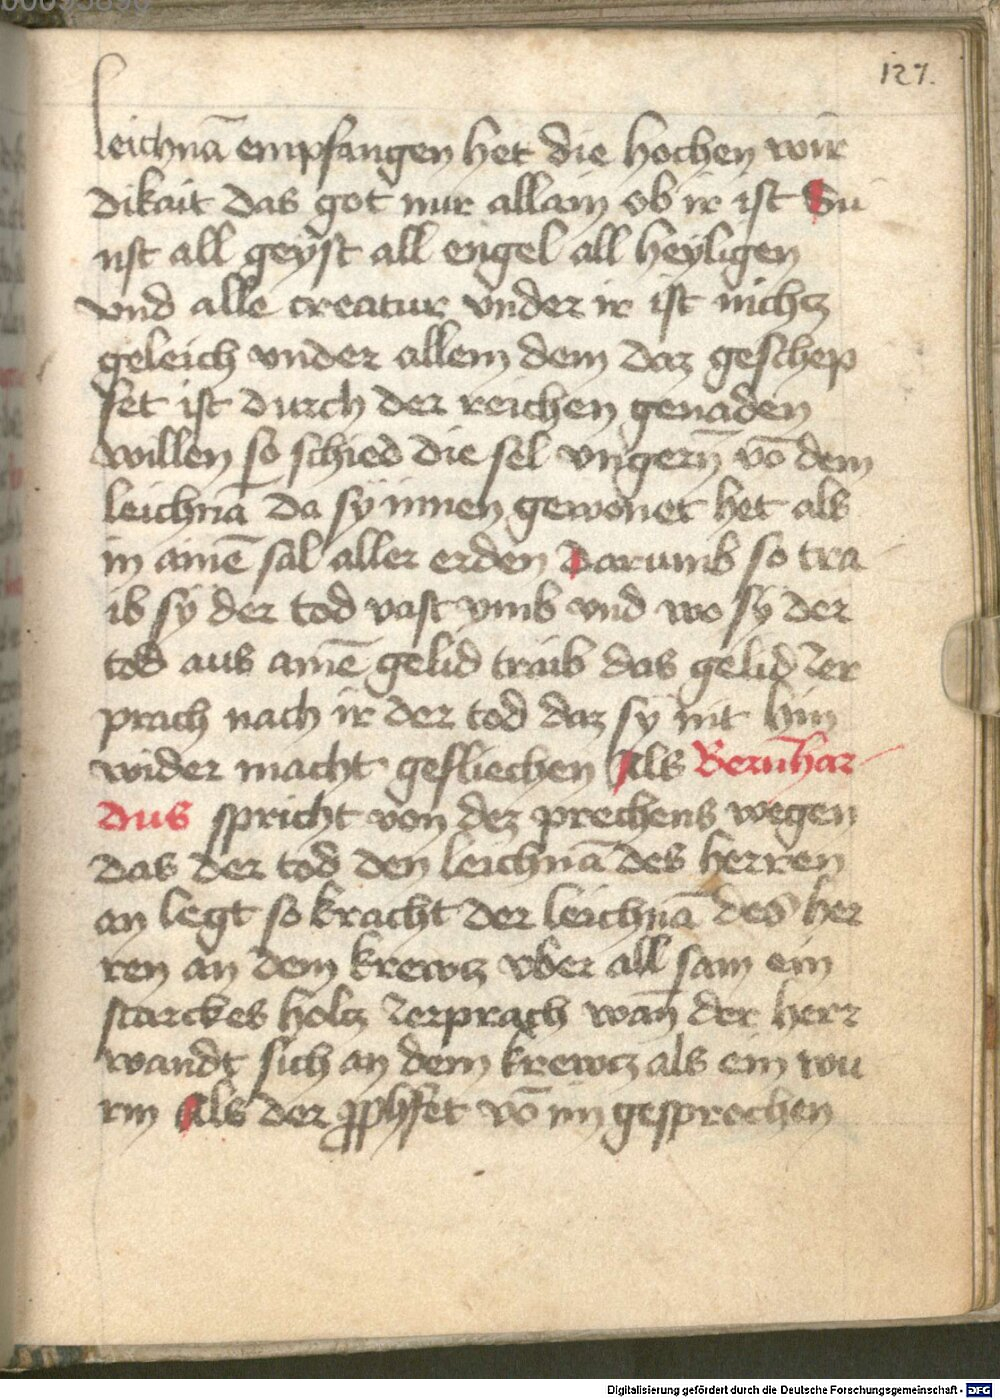 127.
leichnā empfangen het die hochen wir
dikait das got nur allain ob ir ist Su
nst all geÿst all engel all heÿligen
vnd alle creatur vnder ir ist nichcz
geleich vnder allem dem daz geschep
fet ist durch der reichen genaden
willen so schied die sel vngerñ vō dem
leichnā da sÿ innen gewonet het als
in ainē sal aller erden Darumb so tra
ib sÿ der tod vast vmb vnd wo sÿ der
tod aus ainē gelid traib das gelid zer
prach nach ir der tod daz sÿ nit hin
wider macht gefliechen Als Bernhar
dus spricht von dez prechens wegen
das der tod den leichnā des herren
an legt so kracht der leichnā des her
ren an dem krewcz vber all sam ein
starckes holcz zerprach wañ der herr
wandt sich an dem krewcz als ein wu
rm Als der ꝓphet vō im gesprochen
Digitalisierung gefördert durch die Deutsche Forschungsgemeinschaft - DFG